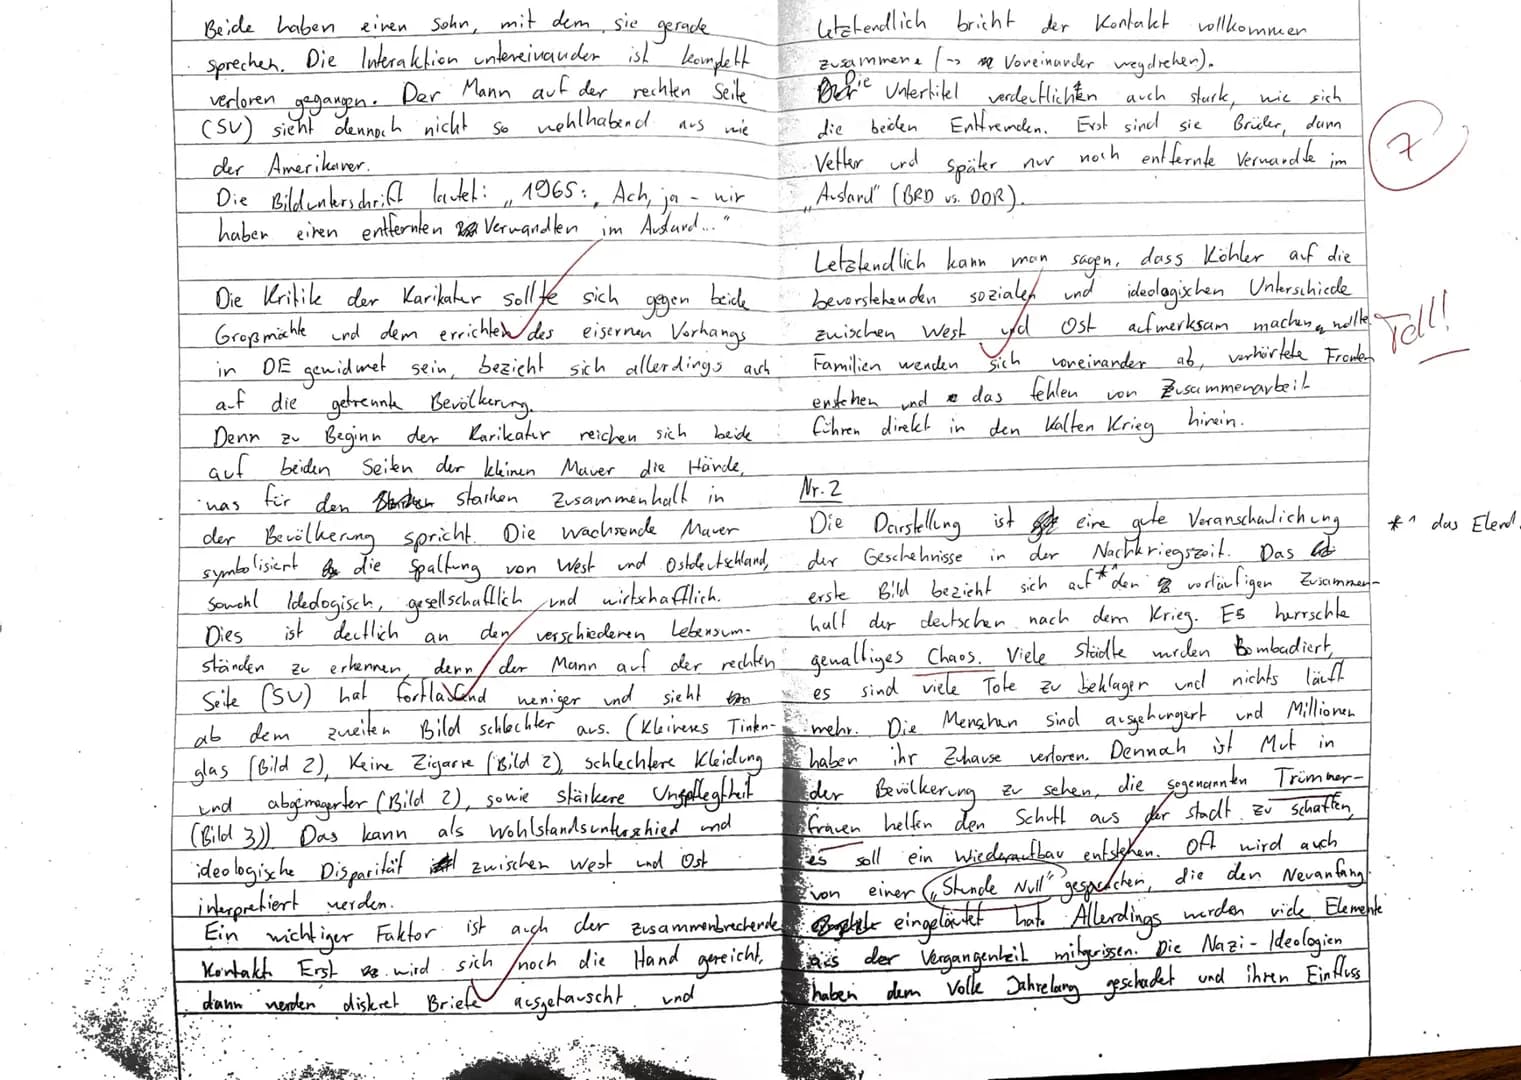 Beide haben einen Sohn, mit dem sie gerade
sprechen. Die Interaktion untereinander ist komplett
verloren gegangen. Der Mann auf der rechten Seite
(SU) sieht dennoch nicht so wohlhabend aus wie
der Amerikaner.
Die Bildunterschrift lautet: „1965: „Ach, ja - wir
haben einen entfernten Verwandten im Ausland..."
Die Kritik der Karikatur sollte sich gegen beide
Großmächte und dem errichten des eisernen Vorhangs
in DE gewidmet sein, bezieht sich allerdings auch
auf die getrennte Bevölkerung.
Denn zu Beginn der Karikatur reichen sich beide
auf beiden Seiten der kleinen Mauer die Hände,
was für den starken Zusammenhalt in
der Bevölkerung spricht. Die wachsende Mauer
symbolisiert die Spaltung von West und Ostdeutschland,
sowohl Ideologisch, gesellschaftlich und wirtschaftlich.
Dies ist deutlich an den verschiedenen Lebensum-
ständen zu erkennen, denn der Mann auf der rechten
Seite (SU) hat fortlaufend weniger und sieht
ab dem zweiten Bild schlechter aus. (Kleineres Tinten-
glas (Bild 2), Keine Zigarre (Bild 2), schlechtere Kleidung
und abgemagerter (Bild 2), sowie Stärkere Ungpflegtheit
(Bild 3)) Das kann als Wohlstandsunterschied und
ideologische Disparität zwischen West und Ost
interpretiert werden.
Ein wichtiger Faktor ist auch der zusammenbrechende
Kontakt. Erst wird sich noch die Hand gereicht,
dann werden diskret Briefe ausgetauscht und
Letztendlich bricht der Kontakt vollkommen
zusammen (-> Voneinander wegdrehen).
Die Untertitel verdeutlichen auch stark, wie sich
die beiden Entfremden. Erst sind sie Brüder, dann
Vetter und später nur noch entfernte Verwandte im
„Ausland" (BRD vs. DDR).
7
Letztendlich kann man sagen, dass Köhler auf die
bevorstehenden sozialen und ideologischen Unterschiede
zwischen West und Ost aufmerksam machen wollte.
Toll!
Familien wenden sich voneinander ab, verhörtete Fronten
entstehen und das fehlen von Zusammenarbeit
führen direkt in den Kalten Krieg hinein.
Nr. 2
Die Darstellung ist eine gute Veranschaulichung
*^ das Elend.
der Geschehnisse in der Nachkriegszeit. Das
erste Bild bezieht sich auf *^ den vorläufigen Zusammen-
halt der deutschen nach dem Krieg. Es herrschte
gewaltiges Chaos. Viele Städte wurden Bombadiert,
es sind viele Tote zu beklagen und nichts läuft
mehr. Die Menschen sind ausgehungert und Millionen
haben ihr Zuhause verloren. Dennoch ist Mut in
der Bevölkerung zu sehen, die sogenannten Trümmer-
frauen helfen den Schutt aus der stadt zu schaffen,
es soll ein Wiederaufbau entstehen. Oft wird auch
von einer „Stunde Null" gesprochen, die den Neuanfang
eingeläutet hat. Allerdings werden viele Elemente
aus der Vergangenheit mitgerissen. Die Nazi-Ideologien
haben dem Volk Jahrelang geschadet und ihren Einfluss